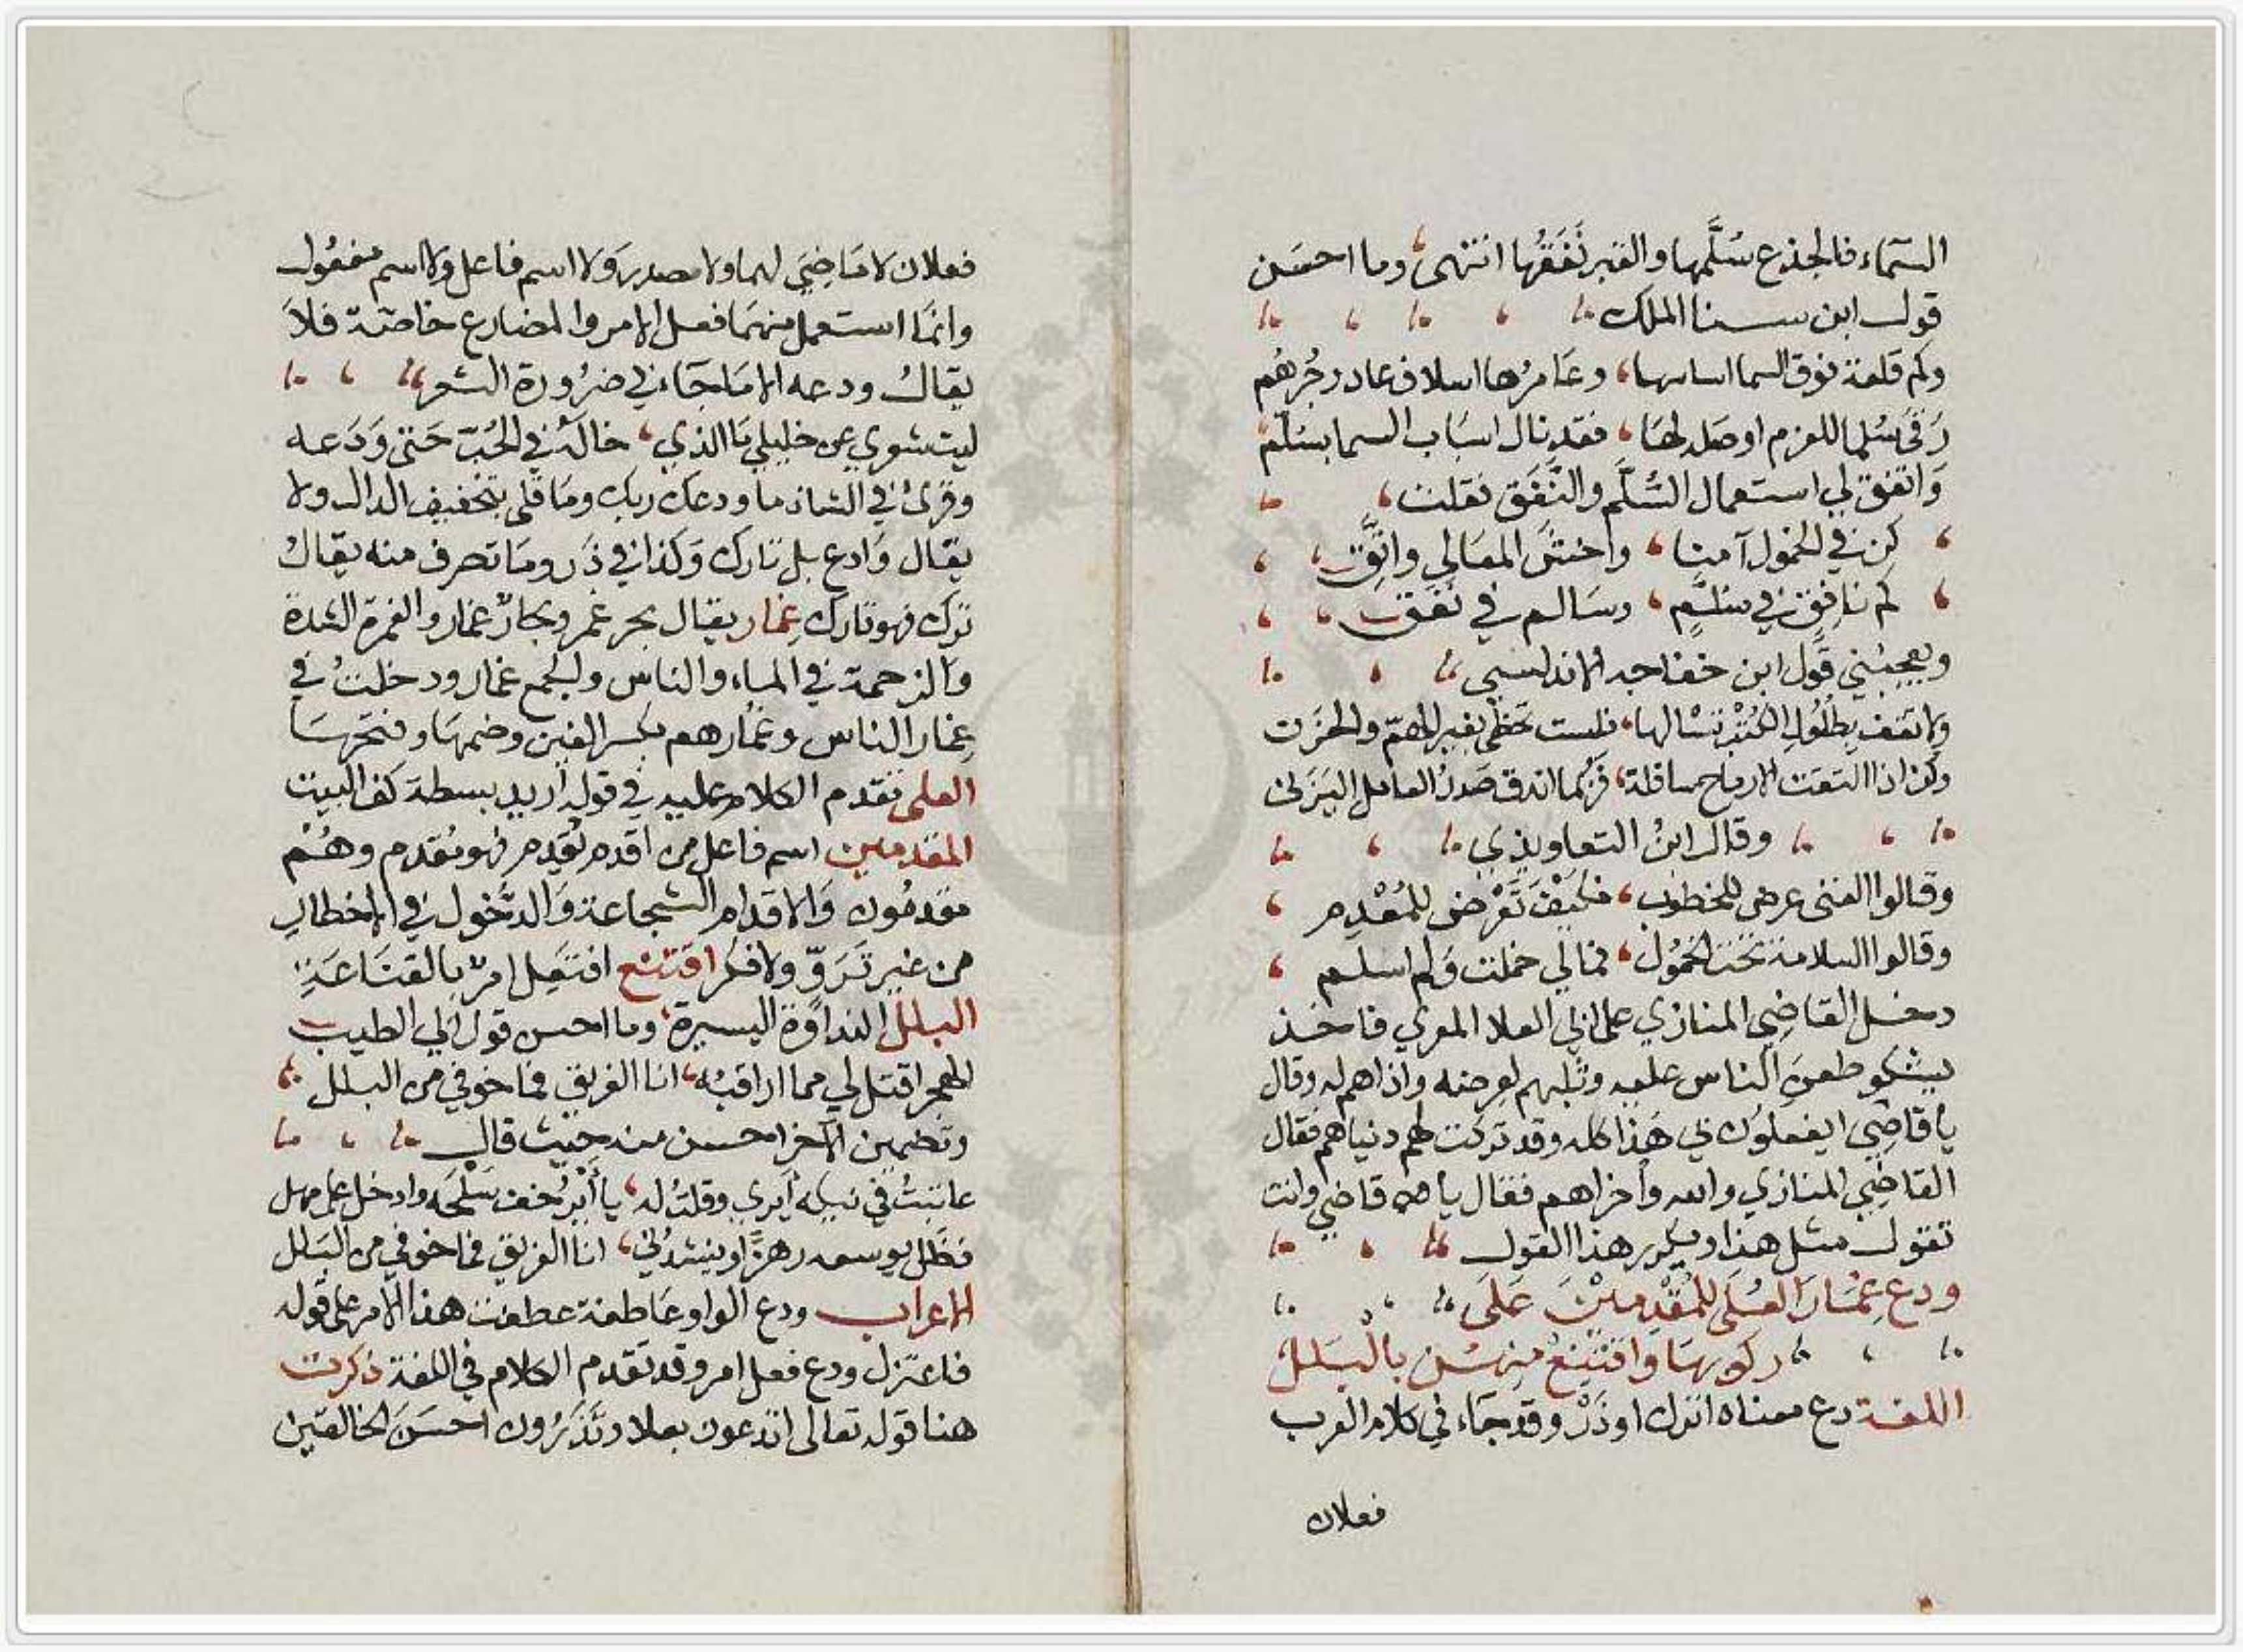 السماء فالجذع سُلَّمها والقبر نَفَقُها انتهى وما احسن
قول ابن سنا الملك
وكم قلعة فوق السما اساسها وعامرها اسلاف عاد وجُرهُم
رَقَى سُلما للعزم اوصله لها فقد نال اسباب السما بسُلّم
وَاتفق لي استعمال السُّلَّم والنَّفَق فقلت
كن في الخمول آمنا واخشَ المعالي واتَّقِ
كم نافِقٍ في سُلَّمٍ وسالم في نَفَق
ويعجبُني قول ابن خفاجه الاندلسي
ولا تقف بطُلُولِ تسْالها فلست تحظى بغير الهمّ والحزَن
وكن اذا التقت الارماح فربما اندق صدرُ العامل اليَزَني
وقال ابنُ التعاويذي
وقالوا الغنى عرض للخطوب فكيف تَعَرَّض للمُعْدِم
وقالوا السلامة تحت الخمُول فمالي خملت وَلم اسلم
دخل القاضِي المنازي على ابي العلا المعري فاخذ
يشكو طعن الناس عليه وثلبهم لعرضه واذاهم له وقال
يا قاضِي ايفعلون بي هَذا كله وقد تركت لهم دنياهم فقال
القاضِي المنازي والله وأخراهم فقال يا قاضي وانت
تقول مثل هذا ويكرر هذا القول
ودع غِمَارَ العُلَى للمُقْدِمينَ عَلَى
ركوبهَا وَاقتَنِعْ مِنهُن بالبَلل
اللغة دع معناه اترك او ذَرْ وقد جَاء في كلام العرب
فعلان
فعلان لا مَاضِي لهما ولا مصدر وَلا اسم فاعل ولا اسم مفعُول
وانمَا استعمل منهمَا فعل الامر والمضارع خاصّة فلاَ
يقالُ ودعه الا مَا جَاء في ضرُورة الشعر
ليت شعري عن خليلي مَا الذي خاله في الحُبّ حَتى وَدَعه
وقُرئ في الشاذ ما ودعك ربك ومَا قلى بتخفيف الدال ولا
يقال وَادع بل تارك وَكذا في ذَر ومَا تصرف منه يقالُ
ترَك فهو تارك غِمار يقال بحر غمر وبحارٌ غمار والغمرة الشدة
وَالزحمة في الماء والناس والجمع غمار ودخلتُ في
غِمار الناس وغمارهم بكسر الغين وضمهَا وفتحهَا
العلى تقدم الكلام عليه في قوله أريد بسطة كف البيت
المقدمين اسم فاعل من اقدم يُقدِم فهو مُقدم وهُمْ
مقدمُون وَالاقدام الشجاعة وَالدخول في الاخطار
من غير تَرَوٍّ ولا فكر اقتنع افتَعِل امرٌ بالقنَاعَةِ
البلل النداوَة اليسيرة وما احسن قول ابي الطيب
الهجر اقتل لي مما اراقبُه انا الغريق فما خوفي من البلل
وتضمين الآخر احسن منه حيث قال
عاتبتُ في نيكه أيري وقلتُ له يا أيْرُ خفف وادخل على مهل
فظَل يوسعه رهزًا وينشدُني انا الغريق فما خوفي من البَلل
الاعراب ودع الواو عَاطفة عطفت هذا الامر على قوله
فاعتزل ودع فعل امر وقد تقدم الكلام في اللغة ذكرت
هنا قوله تعالى اتدعون بعلا وَتَذَرُون احسَنَ الخالقين